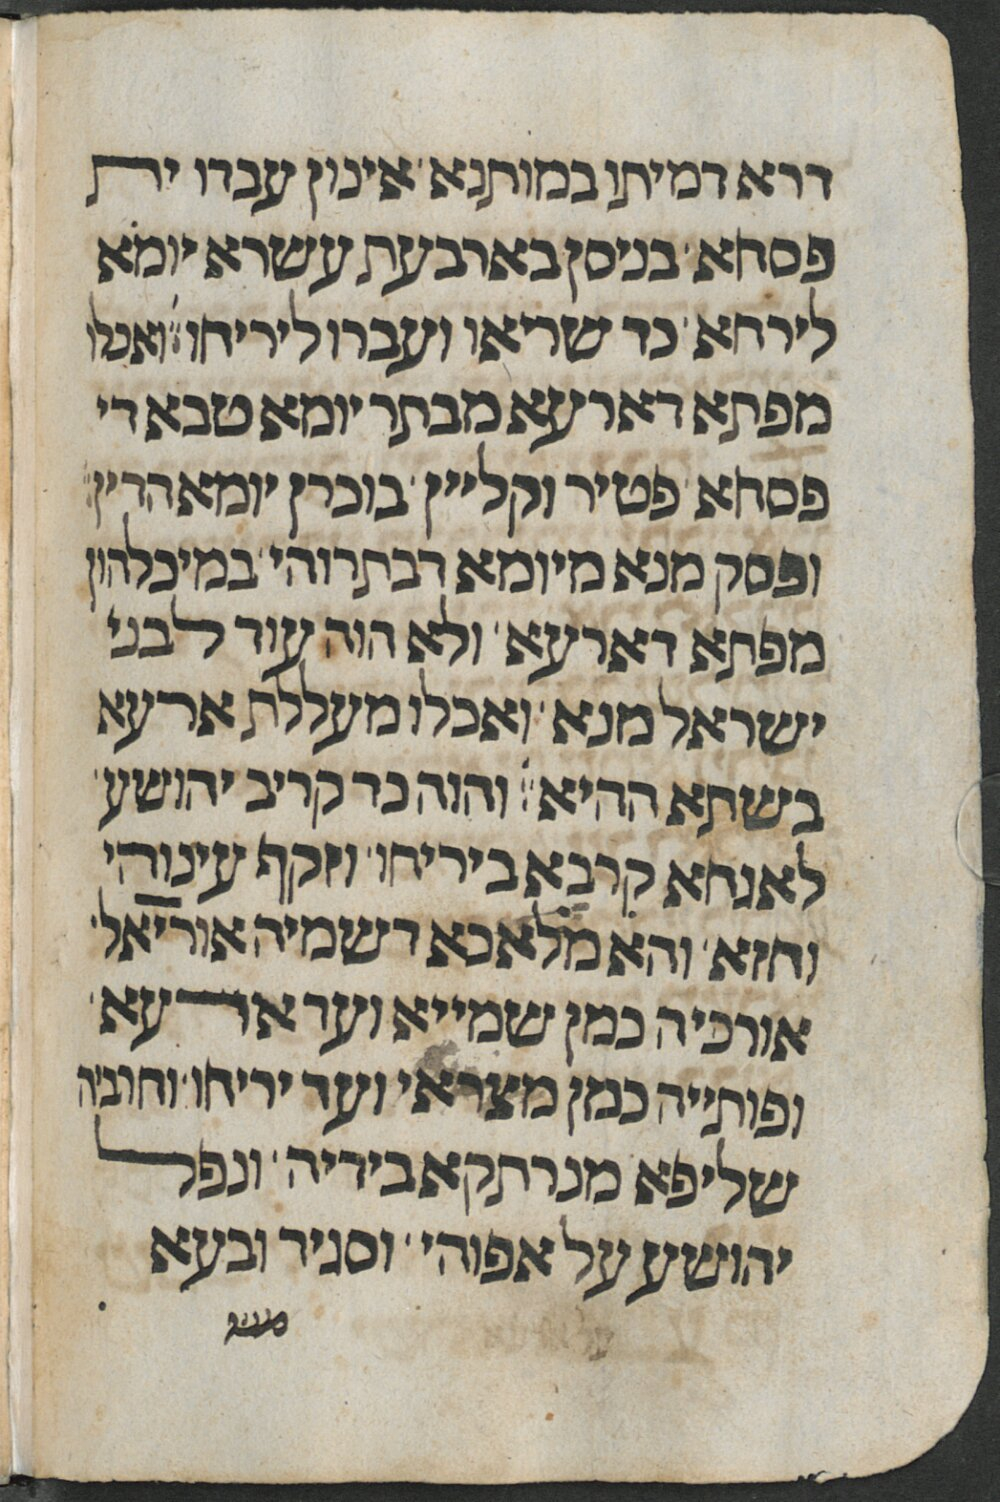 דרא דמיתו במותנא׳ אינון עבדו ית
פסחא׳ בניסן בארבעת עשרא יומא
לירחא׳ כד שריאו ועברו ליריחו׃ ואכלו
מפתא דארעא מבתר יומא טבא די
פסחא׳ פטיר וקליין׳ בוכרן יומא הדין׃
ופסק מנא מיומא דבתרוהי׳ במיכלהון
מפתא דארעא׳ ולא הוה עוד לבני
ישראל מנא׳ ואכלו מעללת ארעא
בשתא ההיא׃ והוה כד קריב יהושע׳
לאגחא קרבא ביריחו׳ וזקף עינוהי
וחזא׳ והא מלאכא דשמיה אוריאל׳
אורכיה כמן שמייא ועד ארעא׳
ופותייה כמן מצראי ועד יריחו׳ וחרביה
שליפא מנרתקא בידיה׳ ונפל
יהושע על אפוהי׳ וסגיד ובעא